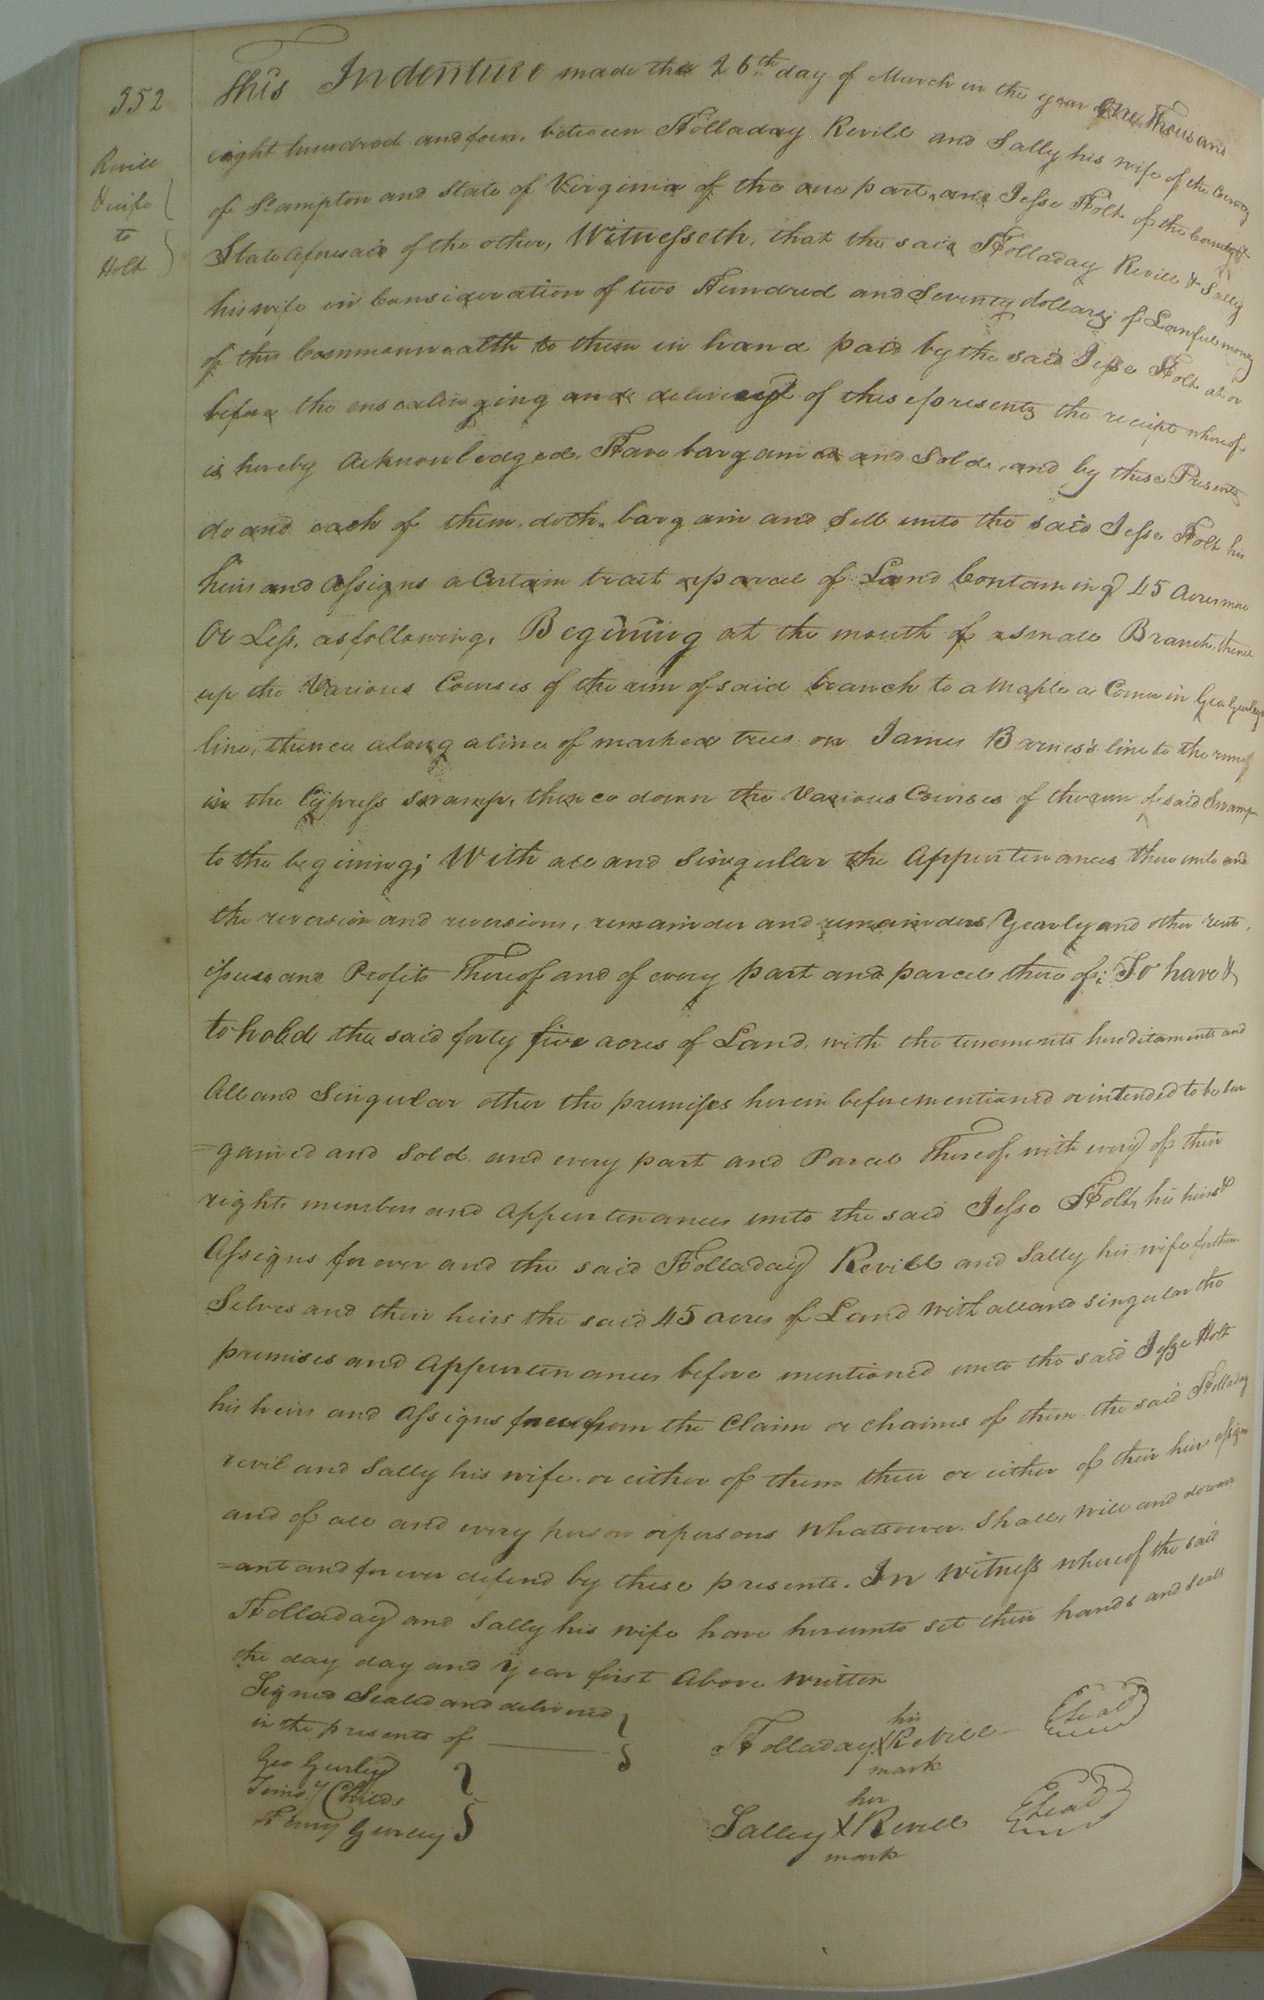 352
Revill
& wife
to
Holt
This Indenture made the 26th day of March in the year One Thousand
eight hundred and four, between Holladay Revill and Sally his wife of the County
of S.ampton and State of Virginia of the one part, and Jesse Holt of the County &
State aforesaid of the other, Witnesseth, that the said Holladay Revill & Sally
his wife in Consideration of two Hundred and Seventy dollars of Lawful money
of this Commonwealth to them in hand paid by the said Jesse Holt at or
before the ensealinging and delivery of these presents the receipt whereof
is hereby Acknowledged, Have bargained and Sold, and by these Presents
do and each of them doth bargain and Sell unto the said Jesse Holt his
heirs and assigns a Certain trait or parcel of Land Containing 45 Acres more
Or Less, as following, Begining at the mouth of a small Branch, thence
up the Various Courses of the run of said branch to a Maple a Corner in Geo Gurleys
line, thence along a line of marked trees on James Barnes's line to the run of
in the Cypress Swamp, thence down the Various Courses of the run of said Swamp
to the begining; With all and Singular the Appurtenances there unto and
the reversion and reversions, remainder and remainders Yearly and other rents,
issues and Profits Thereof and of every part and parcel there of; To have &
to hold the said forty five acres of Land, with the tenements hereditaments and
All and Singular other the premises herein before mentioned or intended to be bar
=gained and Sold and every part and Parcel Thereof, with every of their
rights members and Appurtenances unto the said Jesse Holt, his heirs &
Assigns for ever and the said Holladay Revill and Sally his wife for them
Selves and their heirs the said 45 acres of Land with all and singular the
premises and Appurtenances before mentioned unto the said Jesse Holt
his heirs and Assigns free from the Claim or chaims of them the said Holladay
revil and Sally his wife or either of them their or either of their heirs assigns
and of all and every person or persons Whatsoever, Shall, will and dowarr
=ant and for ever defend by these presents. In Witness whereof the said
Holladay and Sally his wife have hereunto set their hands and seals
the day day and Year first Above written
Signed Sealed and delivered
in the presents of
Geo Gurley
Timoy Childs
Henry Gurley
his
Holladay X Revill Seal
mark
her
Salley X Revill Seal
mark